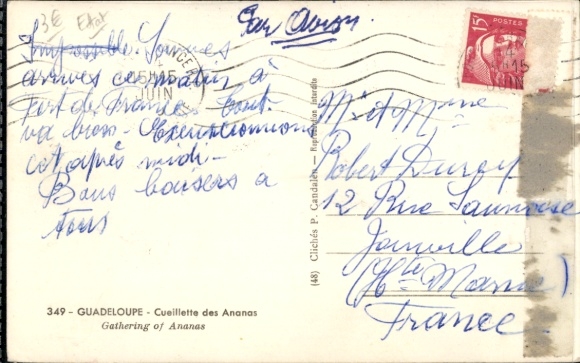 3€ Etat
Par Avion
Sommes
arrivés ce matin à
Fort de France. Tout
va bien - Excursionnons
cet après midi -
Bons baisers à
tous
15F POSTES
15H15
JUIN
15
JUIN
Mr et Mme
Robert Duroy
12 Rue
Joinville
(Hte Marne)
France
(48) Clichés P. Candalen. — Reproduction interdite
349 - GUADELOUPE - Cueillette des Ananas
Gathering of Ananas